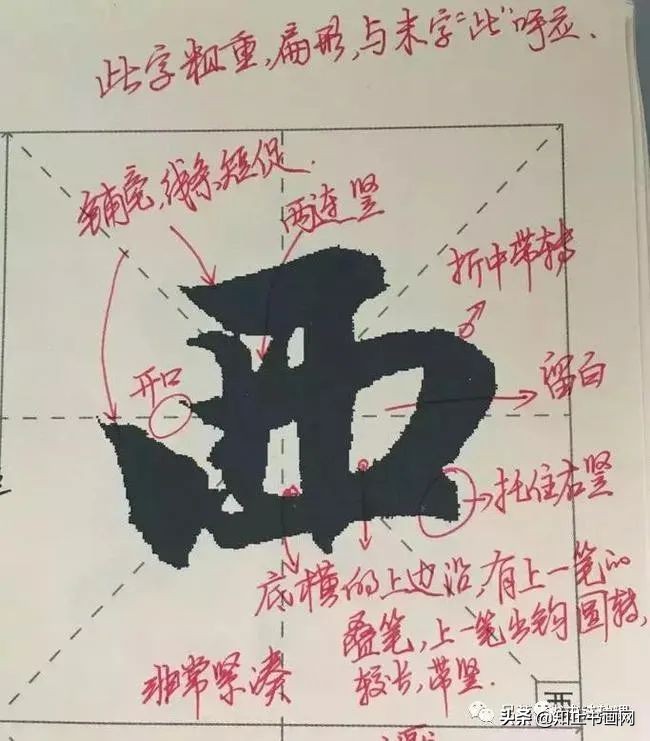 此字粗重,扁形,与末字“此”呼应.
铺毫,线条短促.
两连竖
折中带转
开口
留白
西
托住右竖
底横的上边沿,有上一笔的
叠笔,上一笔出钩圆转,
较长,带竖.
非常紧凑
西
头条 @知止书画网